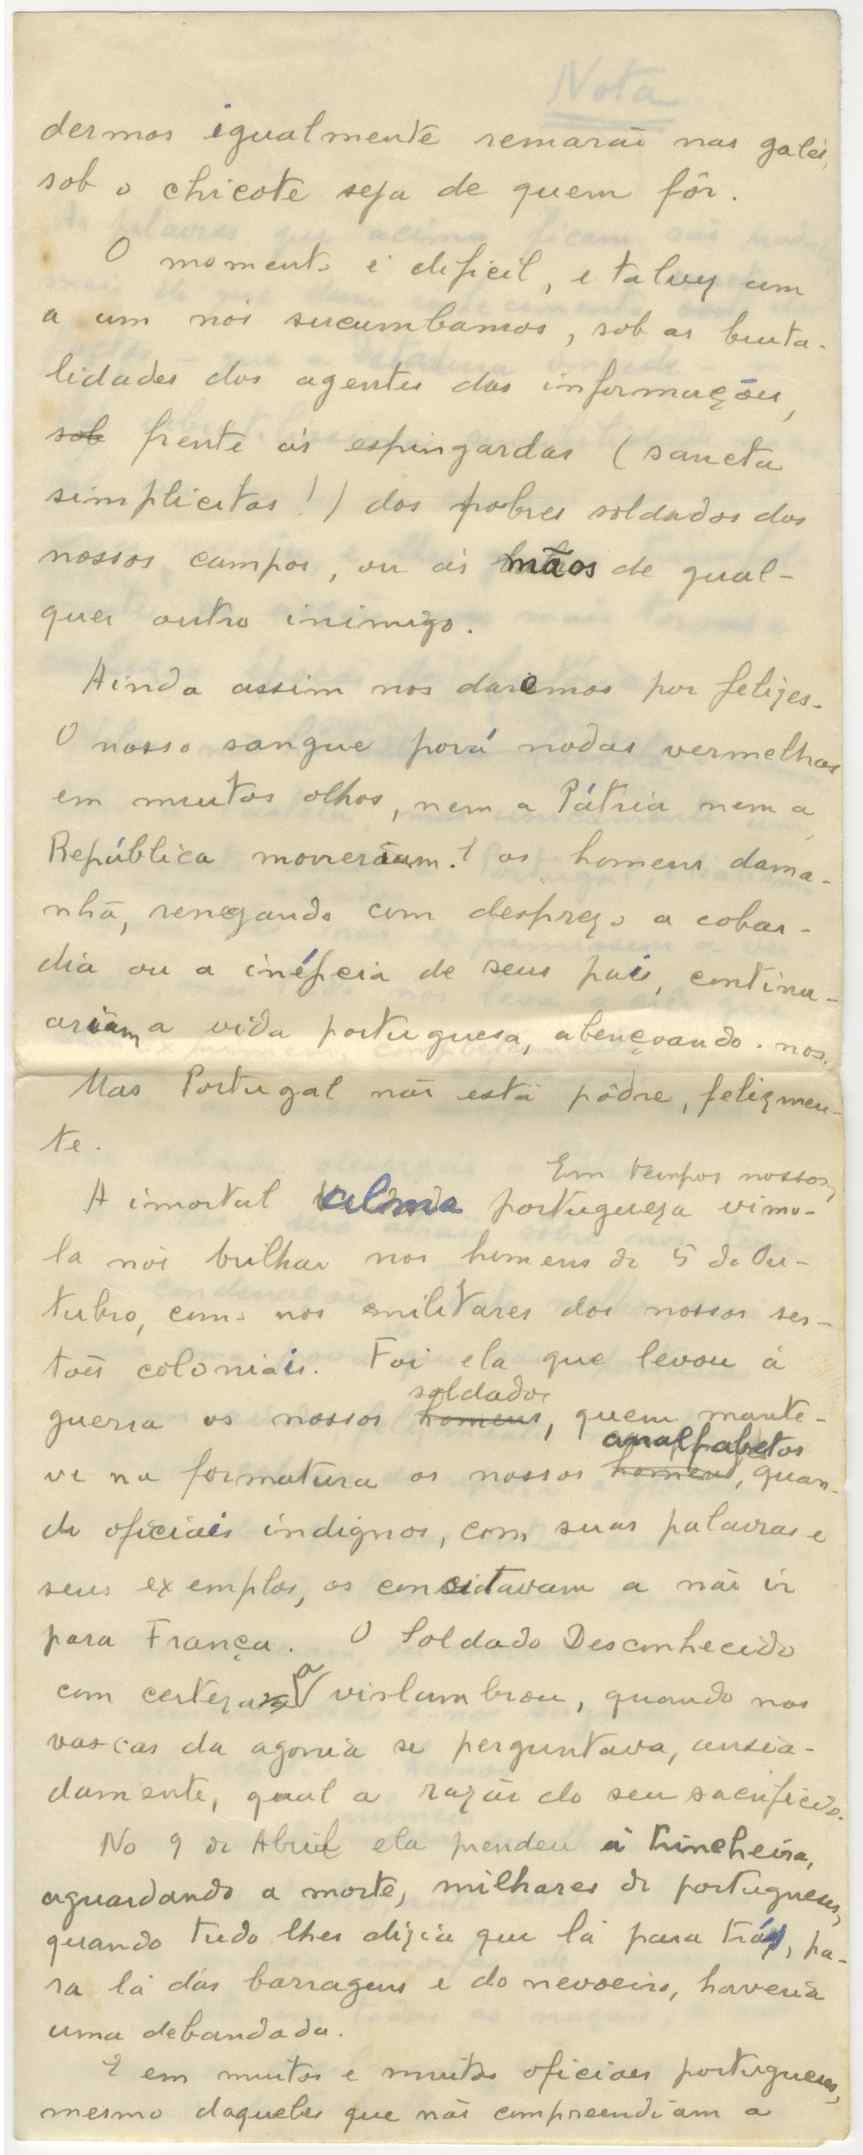 Nota
dermos igualmente remarão nas galés,
sob o chicote seja de quem fôr.
O momento é dificil, e talvez um
a um nós sucumbamos, sob as bruta-
lidades dos agentes das informações,
sob frente ás espingardas (sancta
simplicitas!) dos pobres soldados dos
nossos campos, ou ás mãos de qual-
quer outro inimigo.
Ainda assim nos daremos por felizes.
O nosso sangue porá nodas vermelhas
em muitos olhos, nem a Pátria nem a
República morreriam. E os homens dama-
nhã, renegando com desprezo a cobar-
dia ou a inépcia de seus pais, continu-
ariam a vida portuguesa, abençoando-nos.
Mas Portugal não está pôdre, felizmen-
te.
Em tempos nossos,
A imortal alma portugueza vimo-
la nós brilhar nos homens de 5 de Ou-
tubro, como nos militares dos nossos ser-
tões coloniais. Foi ela que levou á
soldados
guerra os nossos homens, quem mante-
analfabetos
ve na formatura os nossos homens, quan-
do oficiais indignos, com suas palavras e
seus exemplos, os concitavam a não ir
para França. O Soldado Desconhecido
com certeza a vislumbrou, quando nas
vascas da agonia se perguntava, ansia-
damente, qual a razão do seu sacrificio.
No 9 de Abril ela prendeu á trincheira,
aguardando a morte, milhares de portugueses,
quando tudo lhes dizia que lá para trás, pa-
ra lá das barragens e do nevoeiro, haveria
uma debandada.
E em muitos e muitos oficiaes portugueses,
mesmo daqueles que não compreendiam a